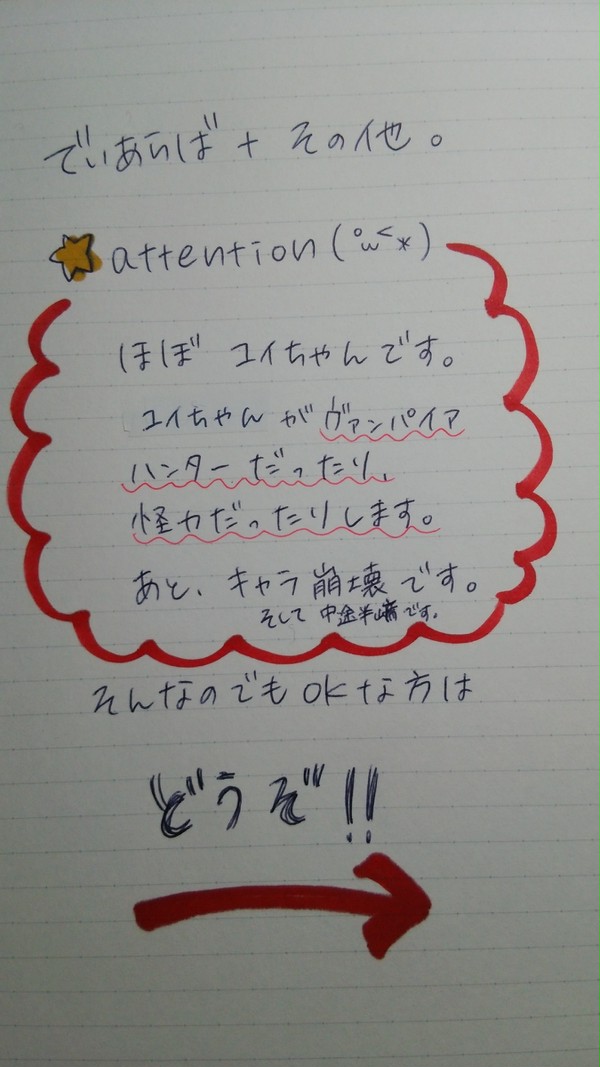 でぃあらば + その他。
attention(°ω<*)
ほぼ ユイちゃんです。
ユイちゃんがヴァンパイア
ハンターだったり、
怪力だったりします。
あと、キャラ崩壊です。
そして 中途半端です。
そんなのでもOKな方は
どうぞ!!